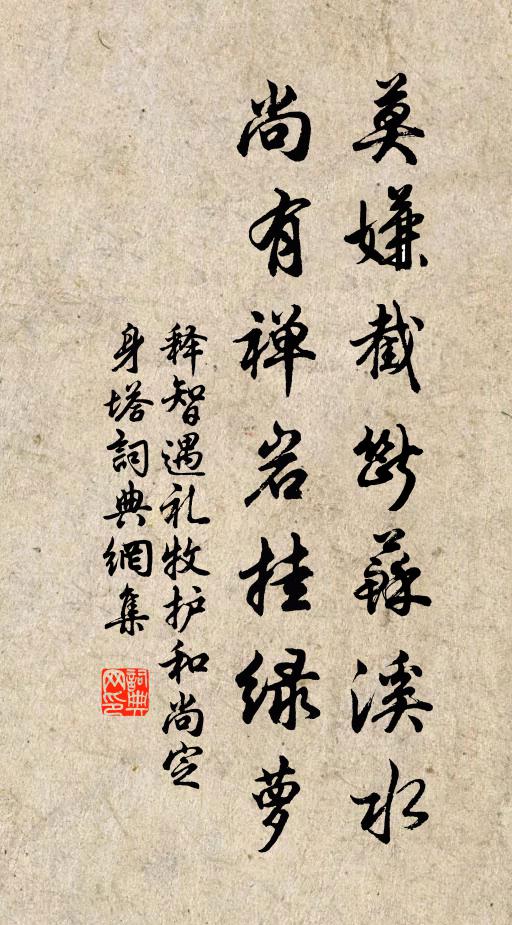 莫嫌截斷蘇溪水
尚有禅岩挂绿萝
释智遇礼牧护和尚定
身塔詞典網集
詞典
网印